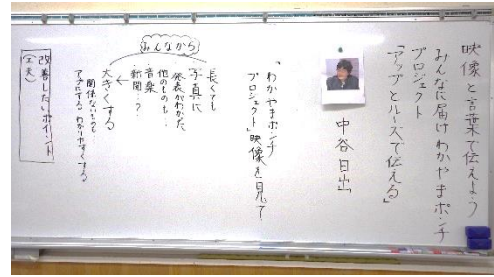 映像と言葉で伝えよう
みんなに届けわかやまポンチ
プロジェクト
「アップとルーズで伝える」
中谷日出
「わかやまポンチ
プロジェクト」映像を見て
みんなから
長くても
写真に
発表がわかた
他のものも‥
音楽
新聞‥?
大きくする
関係ないものも
アップにする わかりやすくする
改善したいポイント
(工夫)